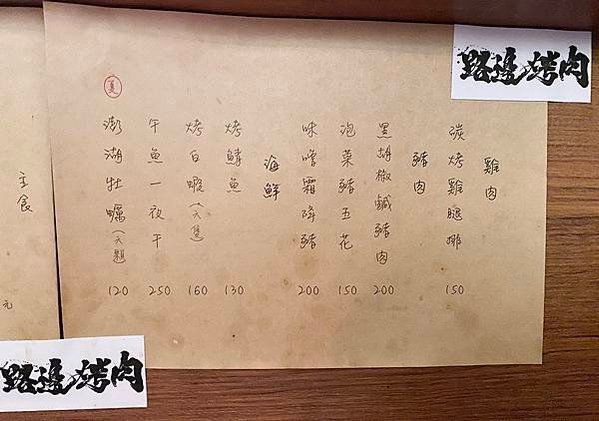 路邊烤肉
雞肉
碳烤雞腿排 150
豬肉
黑胡椒鹹豬肉 200
泡菜豬五花 150
味噌霜降豬 200
海鮮
烤鯖魚 130
烤白蝦(六隻) 160
午魚一夜干 250
澎湖牡蠣(六顆) 120
夏
主食
元
路邊烤肉